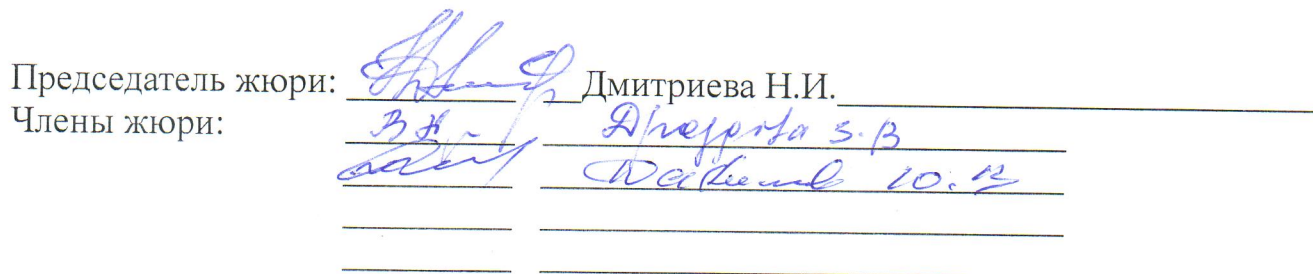 Председатель жюри: Дмитриева Н.И.
Члены жюри:
Дроздова З.В